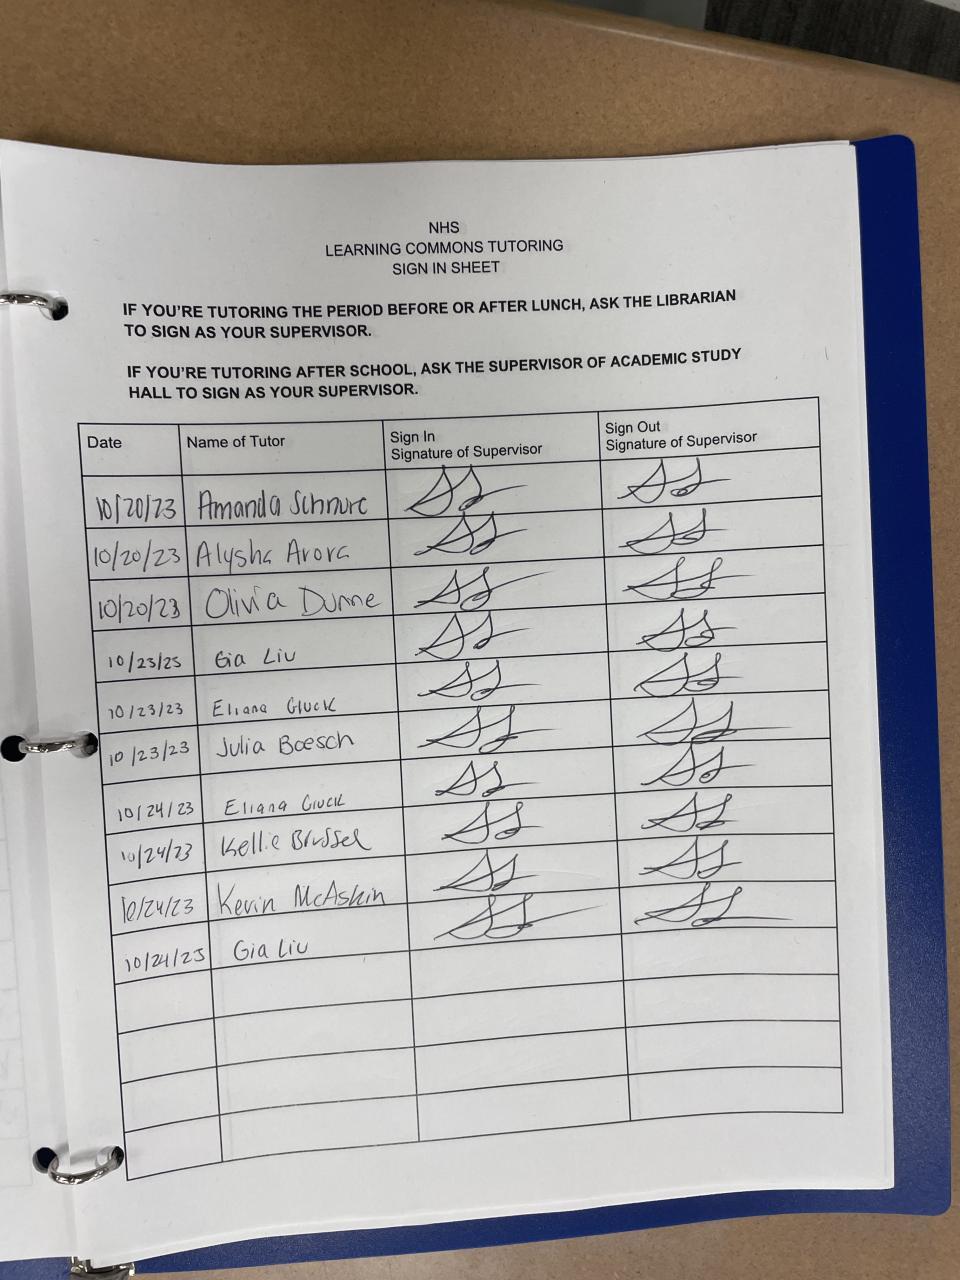 NHS
LEARNING COMMONS TUTORING
SIGN IN SHEET
IF YOU'RE TUTORING THE PERIOD BEFORE OR AFTER LUNCH, ASK THE LIBRARIAN
TO SIGN AS YOUR SUPERVISOR.
IF YOU'RE TUTORING AFTER SCHOOL, ASK THE SUPERVISOR OF ACADEMIC STUDY
HALL TO SIGN AS YOUR SUPERVISOR.
Date Name of Tutor Sign In Signature of Supervisor Sign Out Signature of Supervisor
10/20/23 Amanda Schnurc
10/20/23 Alysha Arora
10/20/23 Olivia Dunne
10/23/23 Gia Liu
10/23/23 Eliana Gluck
10/23/23 Julia Boesch
10/24/23 Eliana Gluck
10/24/23 Kellie Brussel
10/24/23 Kevin McAskin
10/24/23 Gia Liu